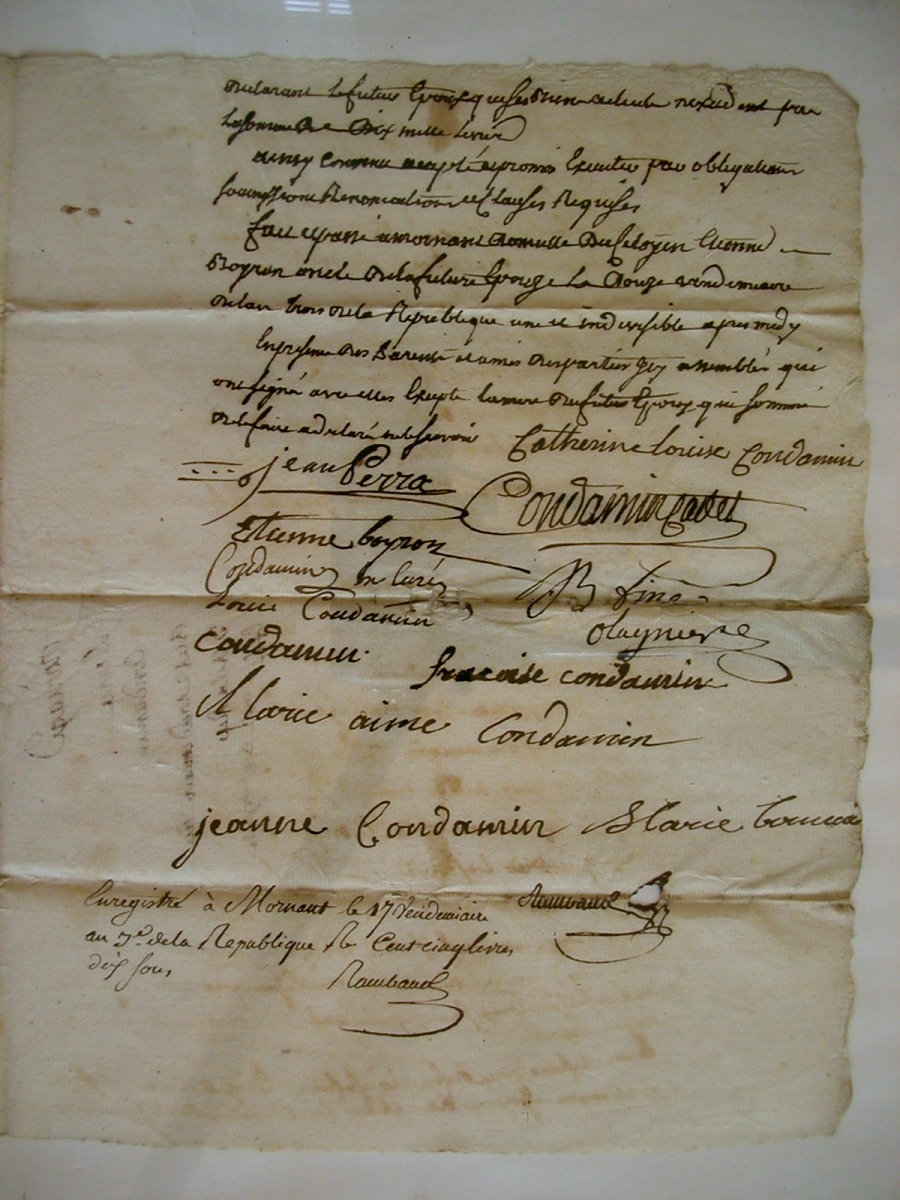 Declarant le futur Epoux que ses Biens actuels n'excedent pas
la somme de Dix mille livres
ainsy convenu accepté et promis Executer par obligations
soumissions Renonciations et Clauses Requises
fait et passé a mornant domicille Du Citoyen Etienne
Boyron oncle De la future Epouze Le Douze vendemiaire
de lan trois de la Republique une et indivisible apres midy
En presence des Parents et amis des parties Icy assemblés qui
ont signé avec elles Excepté la mere du futur Epoux qui sommé
de le faire a declaré ne le scavoir
Catherine Louise Condamin
jean Perra
Condamin Cadet
Etienne boyron
Condamin
B fine
Louise Condamin
Condamin
francoise condamin
Marie aime Condamin
jeanne Condamin Marie
Enregistré à Mornant le 17 Vendemiaire
Raimbaud
au 3e. de la Republique R Cent cinq livres
dix sous
Raimbaud